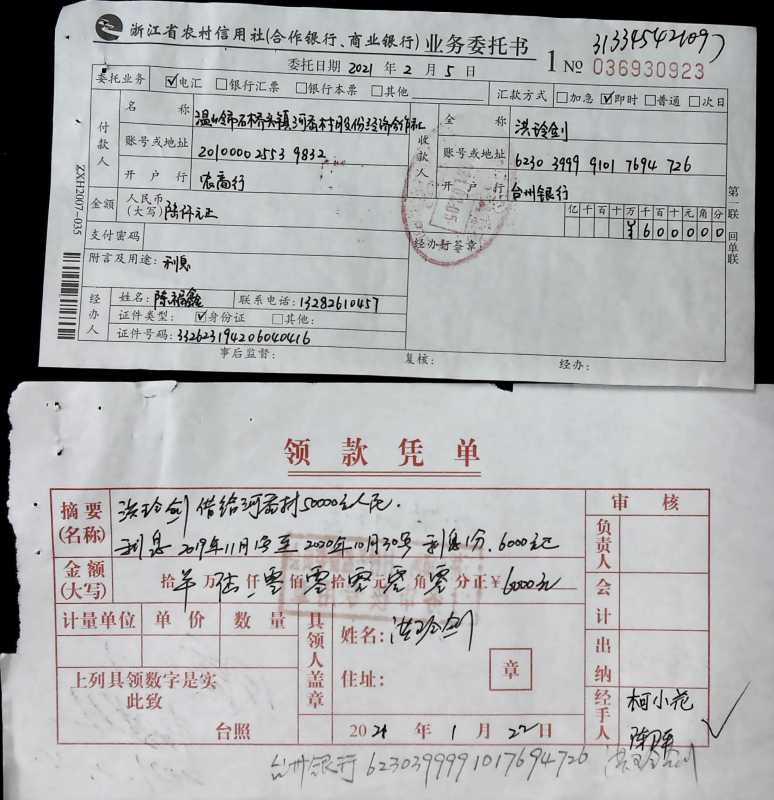 浙江省农村信用社(合作银行、商业银行)业务委托书
1 № 036930923
313345421097
委托日期 2021 年 2 月 5 日
委托业务 ☑电汇 □银行汇票 □银行本票 □其他 汇款方式 □加急 ☑即时 □普通 □次日
付款人 名称 温岭市石桥头镇河岙村股份经济合作社 收款人 全称 洪玲剑
账号或地址 201000025539832 账号或地址 6230 3999 9101 7694 726
开户行 农商行 开户行 台州银行
金额 人民币(大写) 陆仟元正 亿千百十万千百十元角分
¥600000
支付密码 经办行签章:
附言及用途: 利息
经办人 姓名: 陈福鑫 联系电话: 13282610457
证件类型: ☑身份证 □其他:
证件号码: 332623194206040416
事后监督: 复核: 经办:
第一联 回单联
ZXH2007-035
领款凭单
摘要(名称) 洪玲剑借给河岙村50000元人民.
利息2019年11月1号至2020年10月30号利息1分.6000元
审核
负责人
金额(大写) 拾 万陆仟零佰零拾零元零角零分正¥6000元
会计
计量单位 单价 数量 具领人盖章 姓名: 洪玲剑
出纳
上列具领数字是实 住址: 章
此致
经手人 柯小花
台照 2021 年 1 月 22 日
台州银行 6230399991017694726 洪玲剑